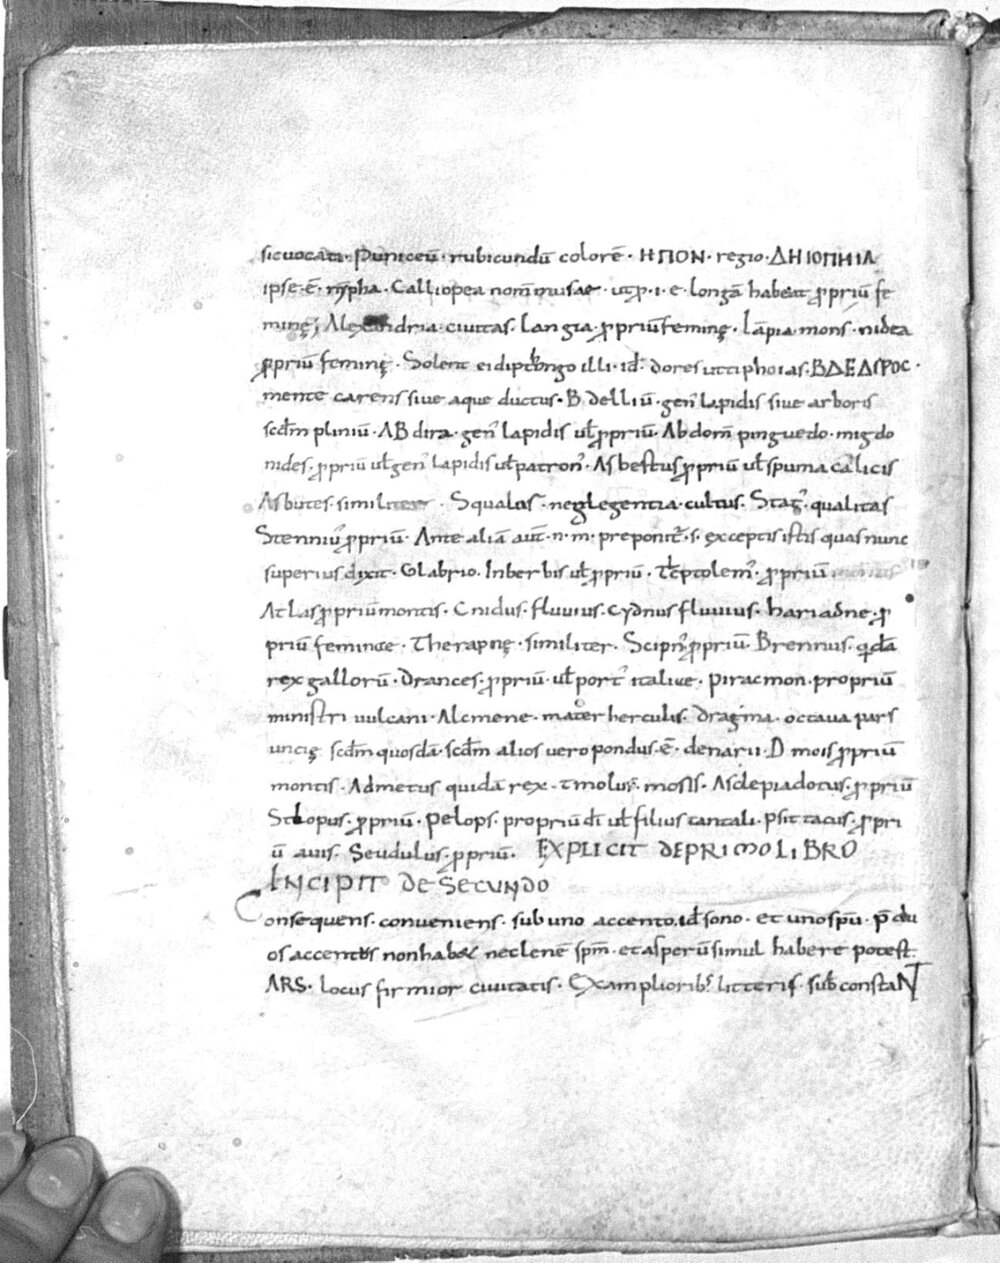 sicvocata· Puniceū· rubicundū colorē· ΗΠΟΝ· regio· ΔΗΙΟΠΗΙΑ
ipse· ē· nȳpha· Calliopea nom̄ musae· longā habeat ꝓpriū fe
minę; Alexandria· civitas· Langia· ꝓpriū feminę· Lāpia· mons· nidea
ꝓpriū feminę· Solent ei diptongo illi· id· dores utiphoias· ΒΔΕΔΡΟC·
mente carens sive aque ductus· Bdelliū· gen̓ lapidis sive arboris
scd̄m pliniū· ABdira· gen̓ lapidis ul̄ ꝓpriū· Abdom̄ pinguedo· migdo
nides· ꝓpriū ul̄ gen̓ lapidis ul̄ patron̓· Asbestus ꝓpriū ul̄ spuma calicis
Asbutes· similiter· Squalas· neglegentia· cultus· Stat̓· qualitas
Stenniu̓ ꝓpriū· Ante aliā aūt· n· m· preponit̓· s· exceptis istis quas nunc
superius dixit· Glabrio· Inberbis ul̄ ꝓpriū· Tl̄eptolem̓· ꝓpriū
Atlas ꝓpriū montis· Cnidus· fluvius· cydnus fluvius· hariadne· ꝓ
priū feminae· Therapnę· similiter· Scipn̓ ꝓpriū· Brennus· qidā
rex gallorū· drances· ꝓpriū· ul̄ port̓ italiae· piracmon· propriū
ministri vulcani· Alcmene· mater herculis· dragma· octava pars
uncię scd̄m quosdā· scd̄m alios vero pondus· ē· denarii· Dmois ꝓpriū
montis· Admetus quidā rex· tmolus· mosis· Asclepiadotus· ꝓpriū
Stlopus· ꝓpriū· pelops· propriū dī ul̄ filius tantali· psittacus· ꝓpri
ū avis· Seudulus· ꝓpriū· EXPLICIT DE PRIMO LIBRO
INCIPIT DE SECUNDO
Consequens· conveniens· sub uno accento· id sono· et uno spū· p̄ du
os accentus non habet nec lenē spm̄· et asperū simul habere potest·
ARS· locus firmior civitatis· Ex amplioribˢ litteris· sub constaNT